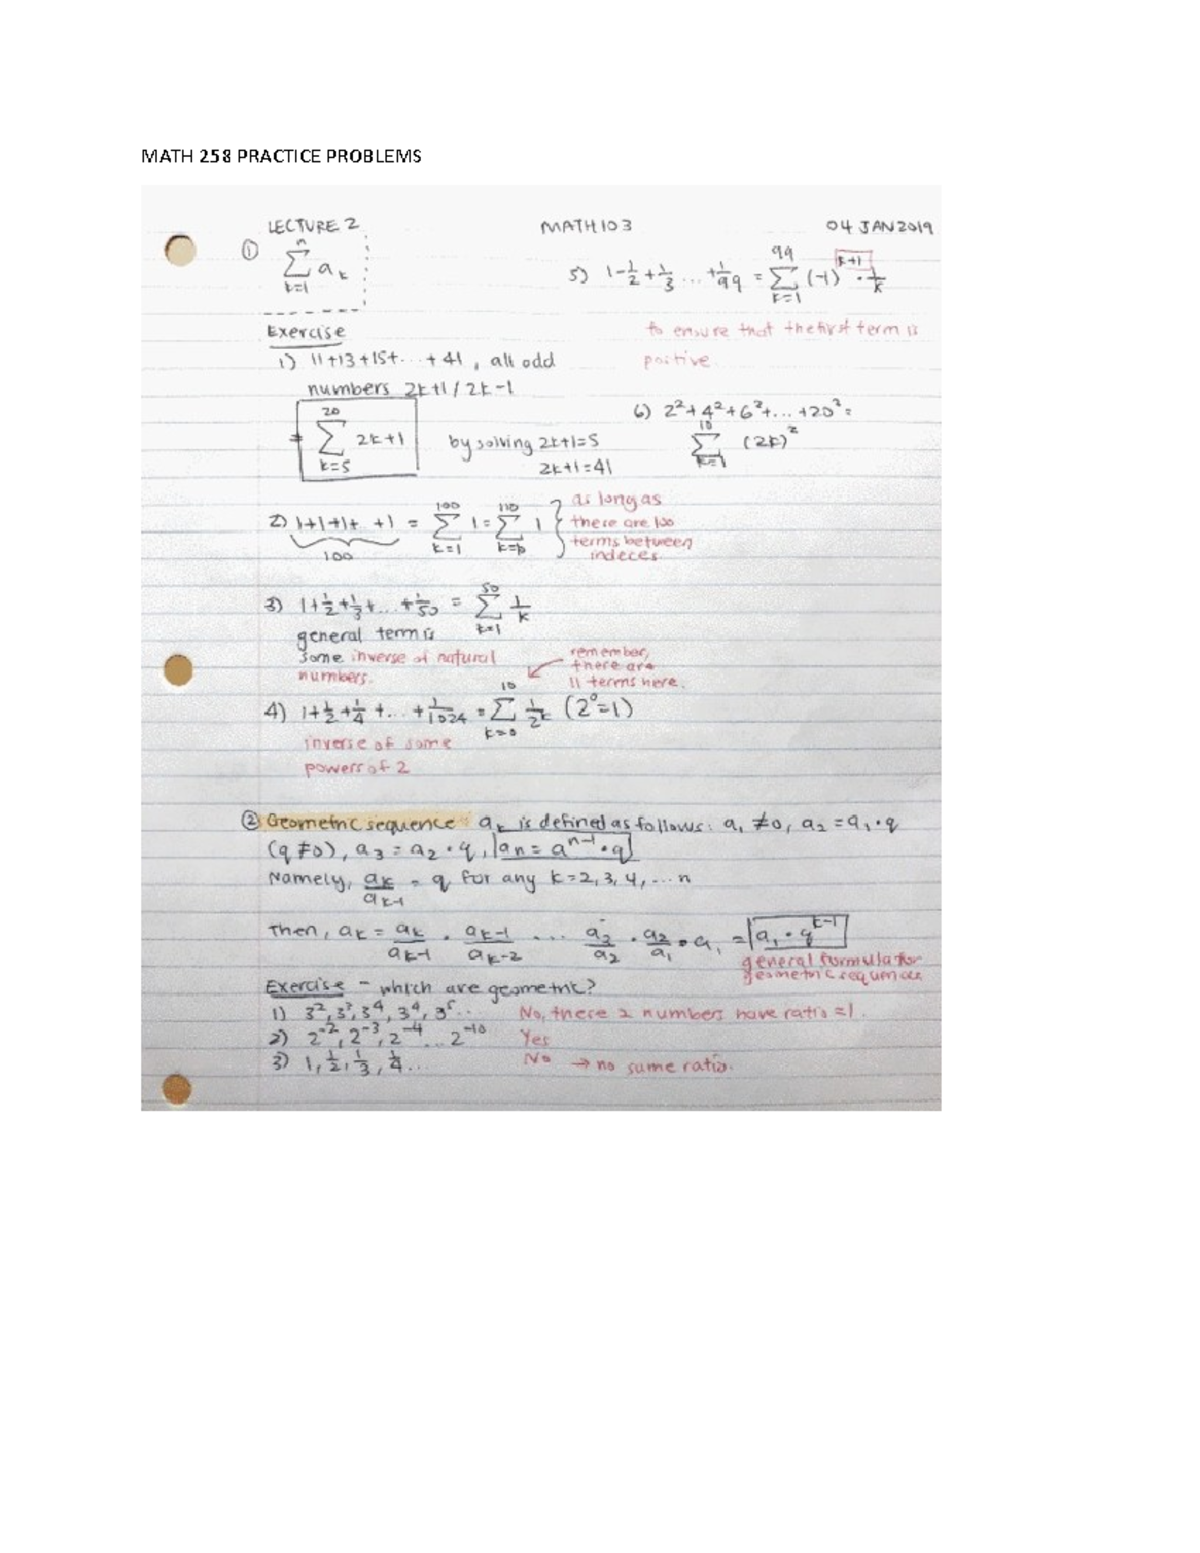 MATH 258 PRACTICE PROBLEMS
LECTURE 2 MATH 103 04 JAN 2019
① n ∑ k=1 a_k
Exercise
1) 11+13+15+...+41, all odd
numbers 2k+1 / 2k-1
= 20 ∑ k=5 2k+1 by solving 2k+1=5
2k+1=41
2) 1+1+1+ +1 = 100 ∑ k=1 1 = 110 ∑ 1
100
as long as
there are 100
terms between
indeces.
3) 1+1/2+1/3+...+1/50 = 50 ∑ k=1 1/k
general term is
some inverse of natural
numbers.
remember,
there are
11 terms here.
4) 1+1/2+1/4+...+1/1024 = 10 ∑ k=0 1/2^k (2^0=1)
inverse of some
powers of 2
5) 1-1/2+1/3...+1/99 = 99 ∑ k=1 (-1)^(k+1) · 1/k
to ensure that the first term is
positive.
6) 2²+4²+6²+...+20²=
10 ∑ k=1 (2k)²
② Geometric sequence: a_k is defined as follows: a_1 ≠0, a_2 = a_1 · q
(q ≠0), a_3 = a_2 · q, a_n = a^(n-1) · q
Namely, a_k/a_(k-1) = q for any k=2, 3, 4, ... n
Then, a_k = a_k/a_(k-1) · a_(k-1)/a_(k-2) ... a_3/a_2 · a_2/a_1 · a_1 = a_1 · q^(k-1)
general formula for
geometric sequences
Exercise - which are geometric?
1) 3², 3³, 3⁴, 3⁴, 3⁵... No, there 2 numbers have ratio =1.
2) 2^-2, 2^-3, 2^-4 ... 2^-10 Yes
3) 1, 1/2, 1/3, 1/4... No → no same ratio.